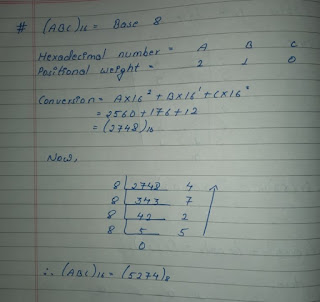 # (ABC)₁₆ = Base 8
Hexadecimal number = A B C
Positional weight = 2 1 0
Conversion = A×16² + B×16¹ + C×16⁰
= 2560 + 176 + 12
= (2748)₁₀
Now,
8 2748 4
8 343 7
8 42 2
8 5 5
0
∴ (ABC)₁₆ = (5274)₈